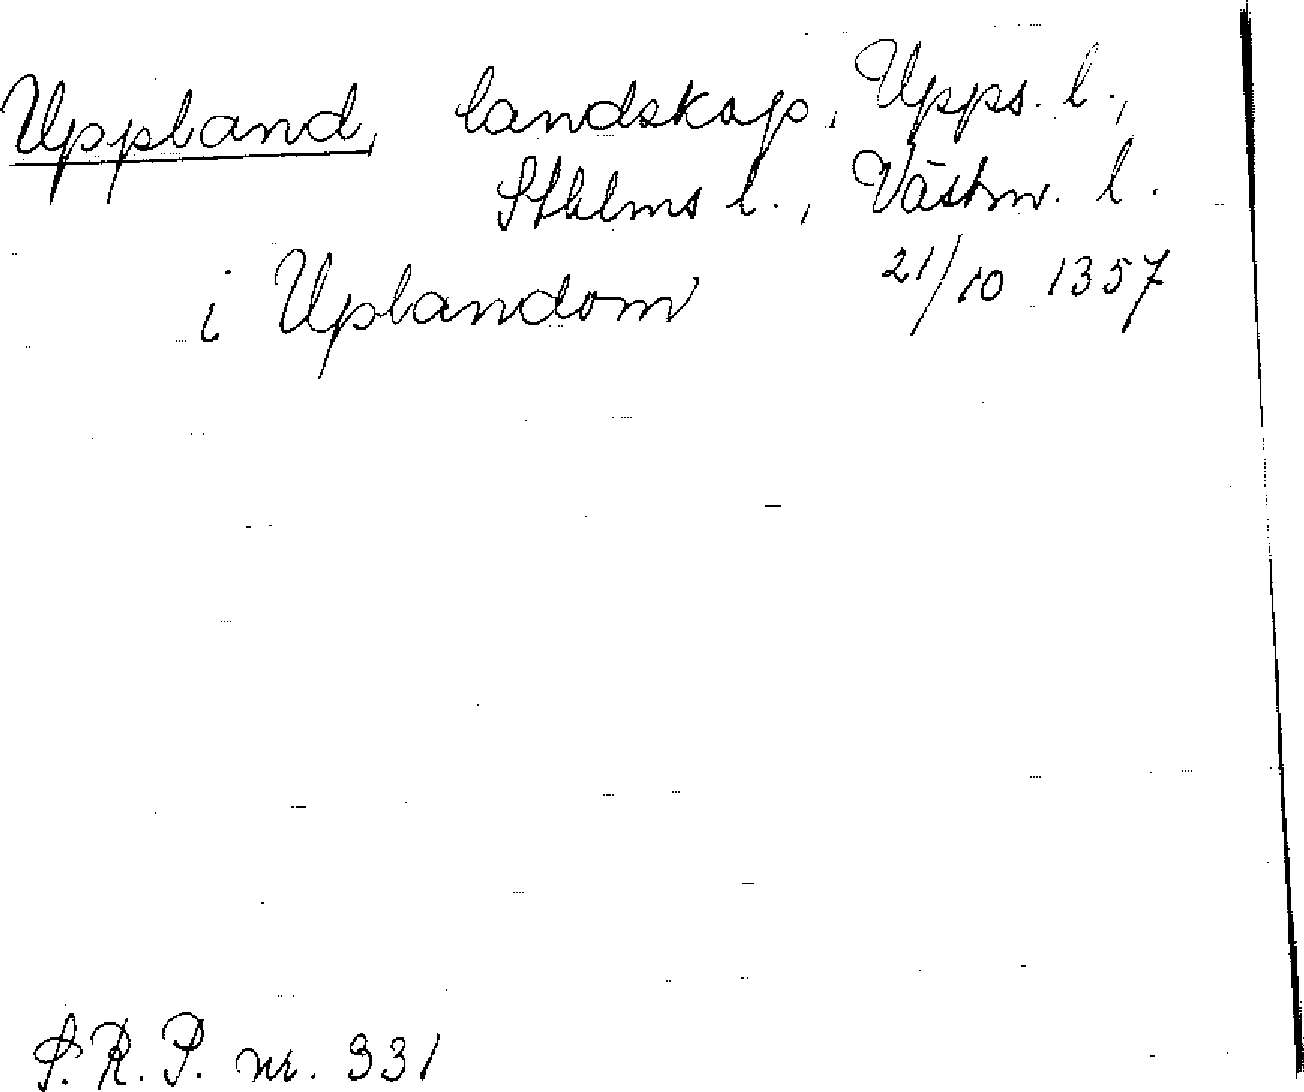 Uppland, landskap, Upps. l.,
Sthlms l., Västm. l.
i Uplandom 21/10 1357
S.R.P. nr. 331